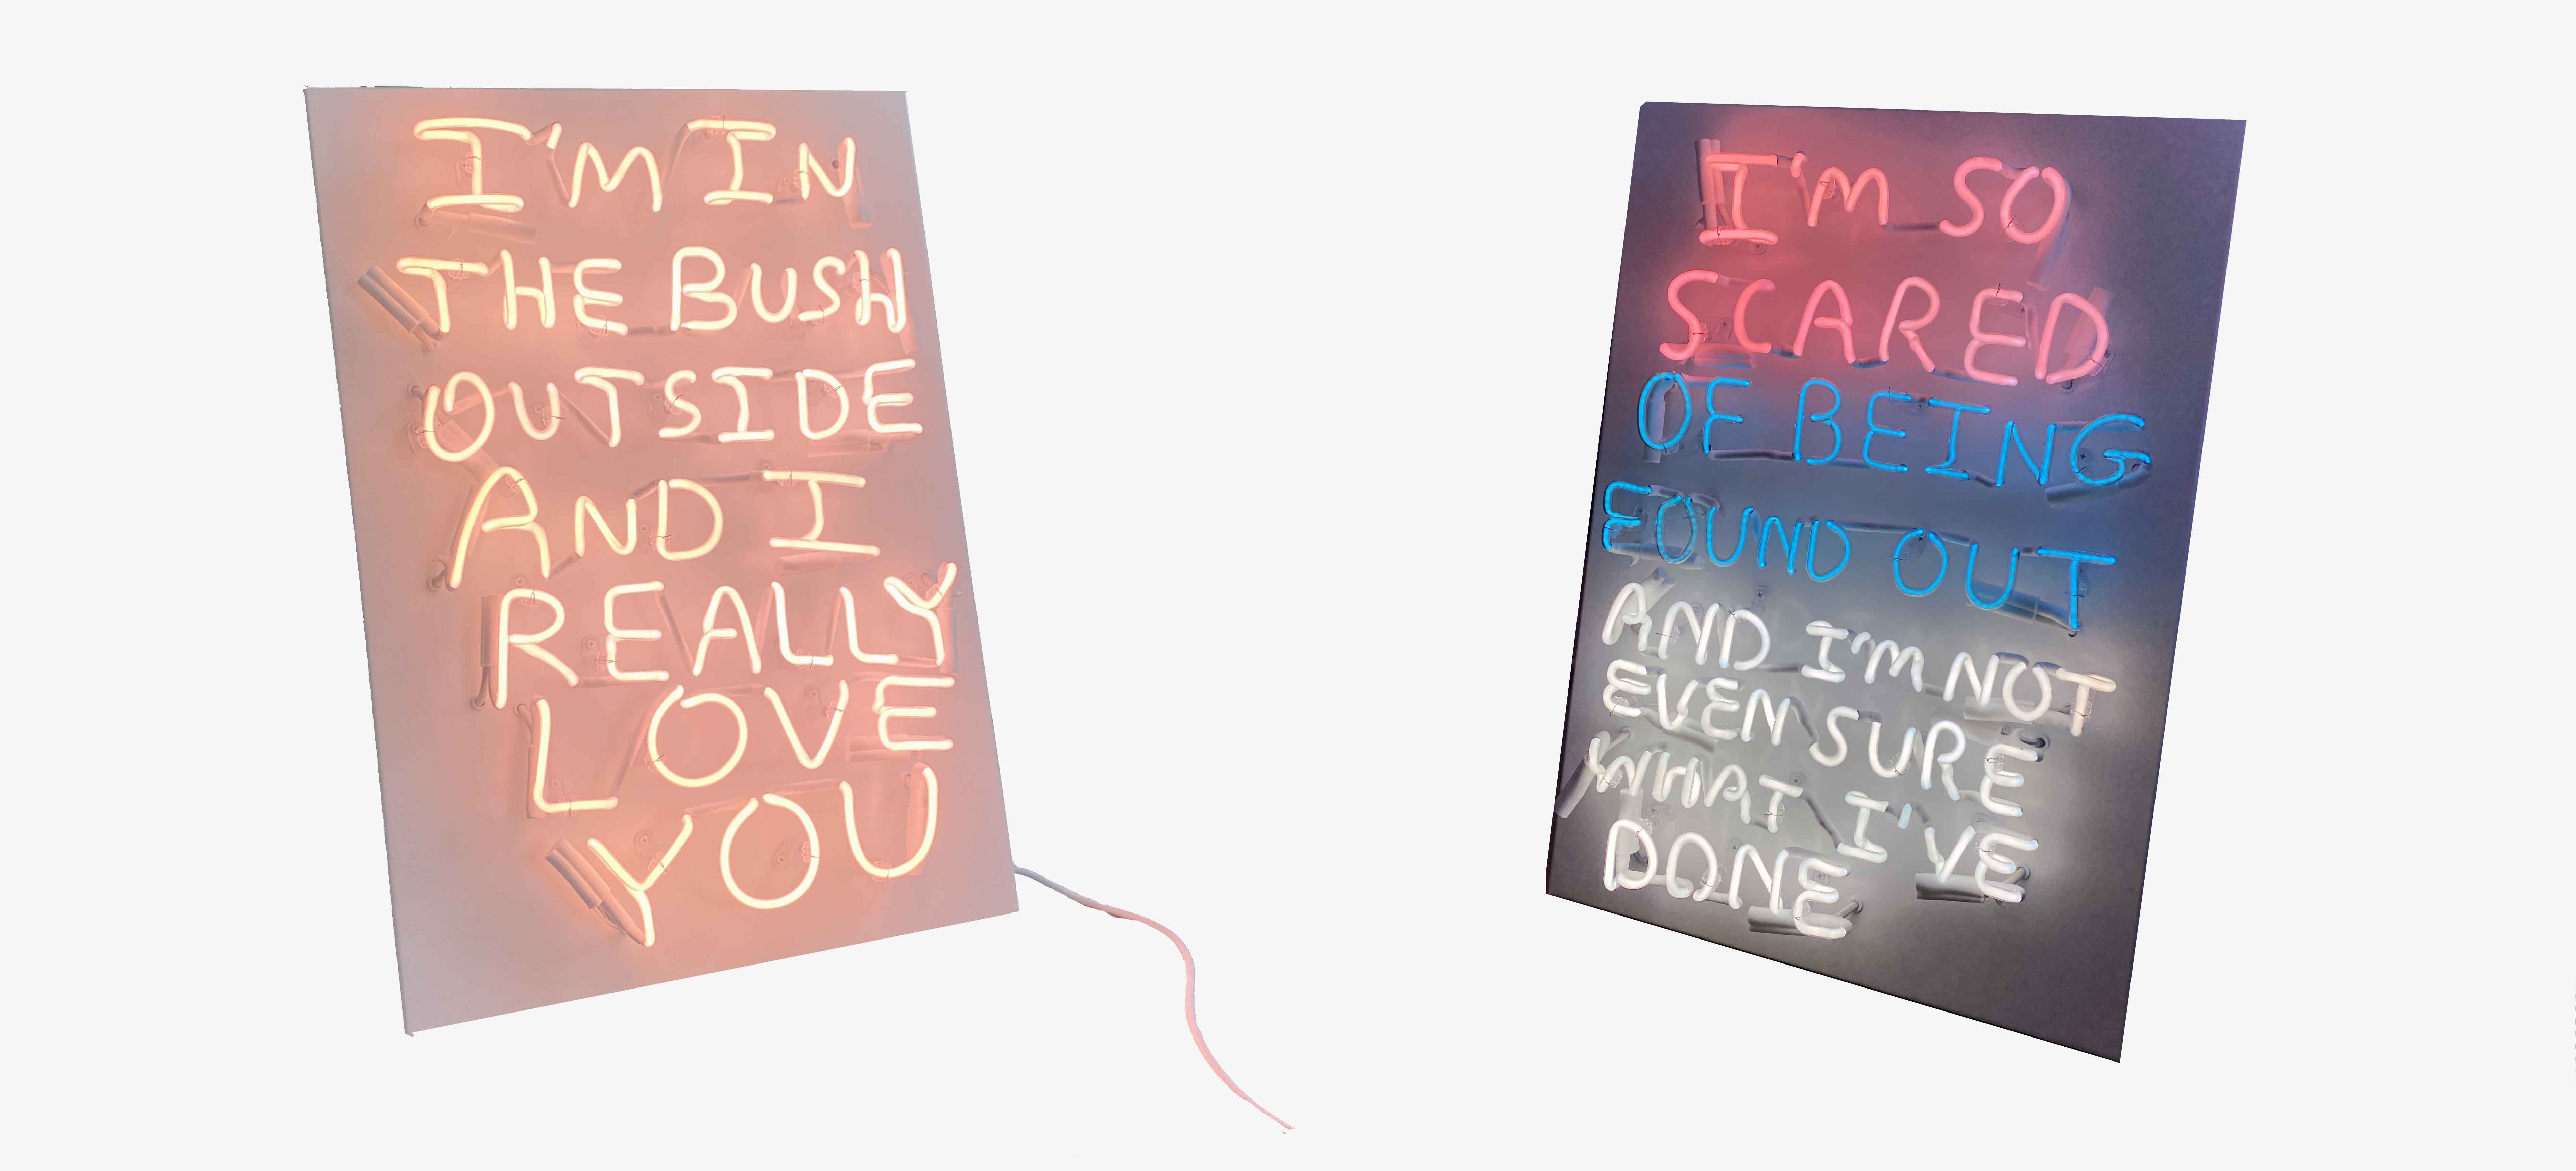 I'M IN
THE BUSH
OUTSIDE
AND I
REALLY
LOVE
YOU
I'M SO
SCARED
OF BEING
FOUND OUT
AND I'M NOT
EVEN SURE
WHAT I'VE
DONE